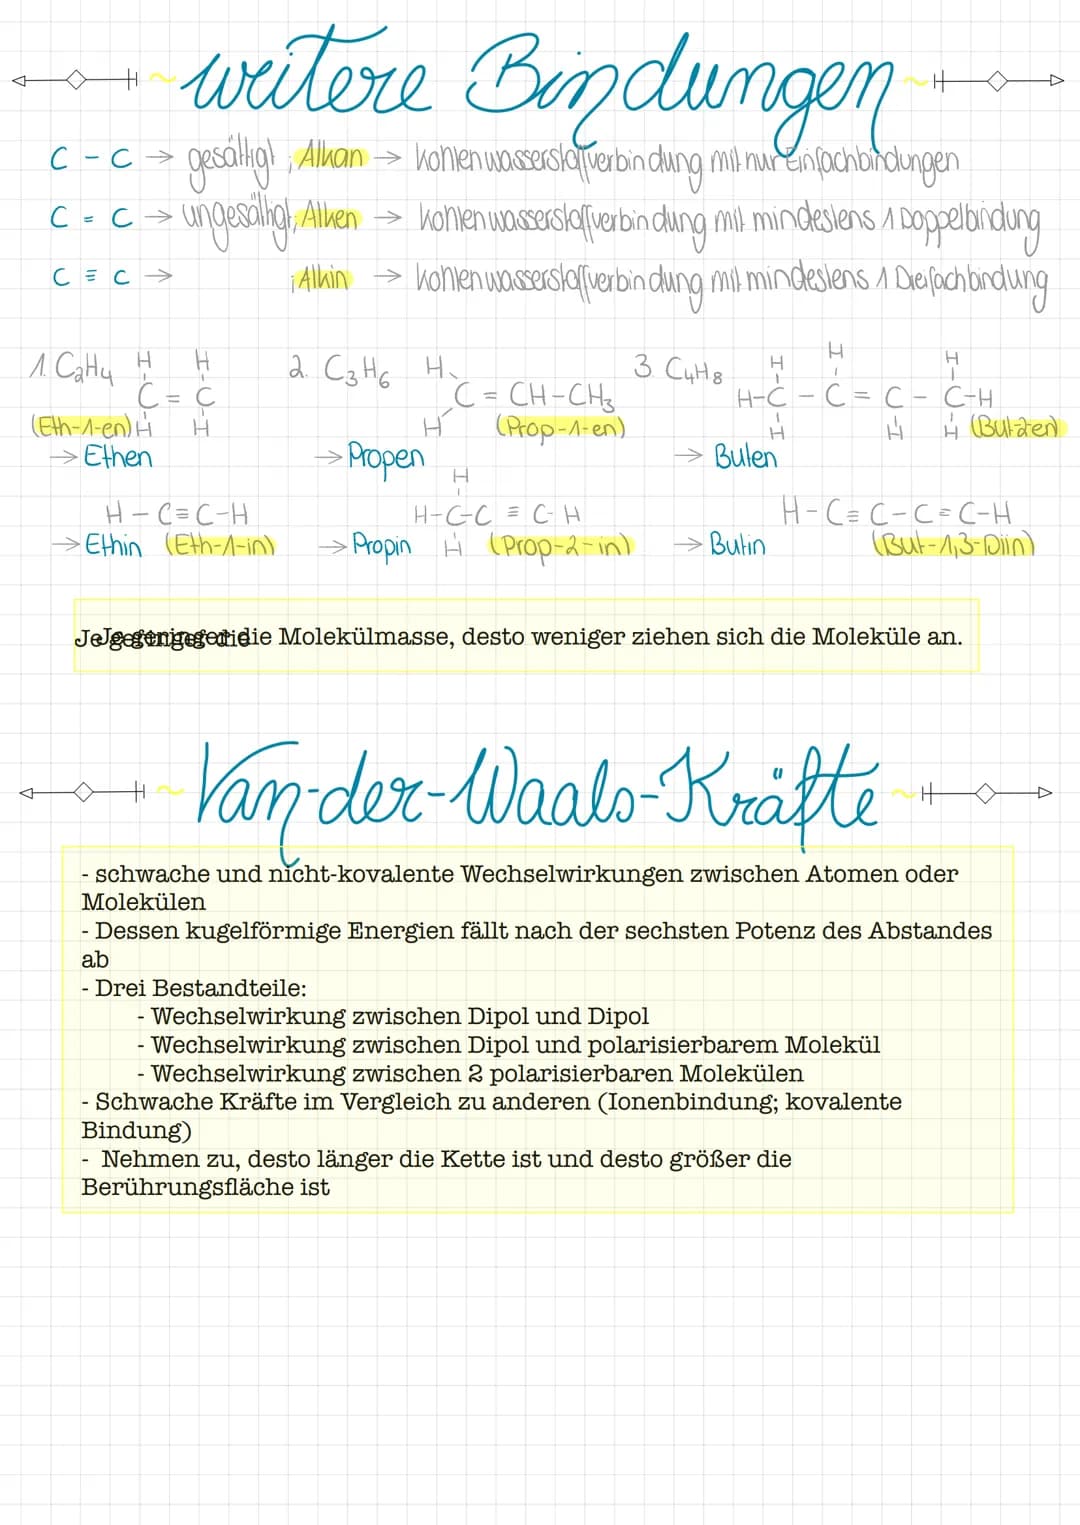 weitere Bindungen
C - C → gesättigt ; Alkan → Kohlenwasserstoffverbindung mit nur Einfachbindungen
C = C → ungesättigt; Alken → Kohlenwasserstoffverbindung mit mindestens 1 Doppelbindung
C ≡ C → ; Alkin → Kohlenwasserstoffverbindung mit mindestens 1 Dreifachbindung
1. C₂H₄ H H 2. C₃H₆ H 3. C₄H₈ H H H
C = C C = CH-CH₃ H-C - C = C - C-H
(Eth-1-en) H H H (Prop-1-en) H H H (But-2-en)
→ Ethen → Propen → Buten
H
H - C≡C-H H-C-C ≡ C-H H-C≡C-C≡C-H
→ Ethin (Eth-1-in) → Propin H (Prop-2-in) → Butin (But-1,3-Diin)
Je geringer die Molekülmasse, desto weniger ziehen sich die Moleküle an.
Van-der-Waals-Kräfte
- schwache und nicht-kovalente Wechselwirkungen zwischen Atomen oder
Molekülen
- Dessen kugelförmige Energien fällt nach der sechsten Potenz des Abstandes
ab
- Drei Bestandteile:
- Wechselwirkung zwischen Dipol und Dipol
- Wechselwirkung zwischen Dipol und polarisierbarem Molekül
- Wechselwirkung zwischen 2 polarisierbaren Molekülen
- Schwache Kräfte im Vergleich zu anderen (Ionenbindung; kovalente
Bindung)
- Nehmen zu, desto länger die Kette ist und desto größer die
Berührungsfläche ist